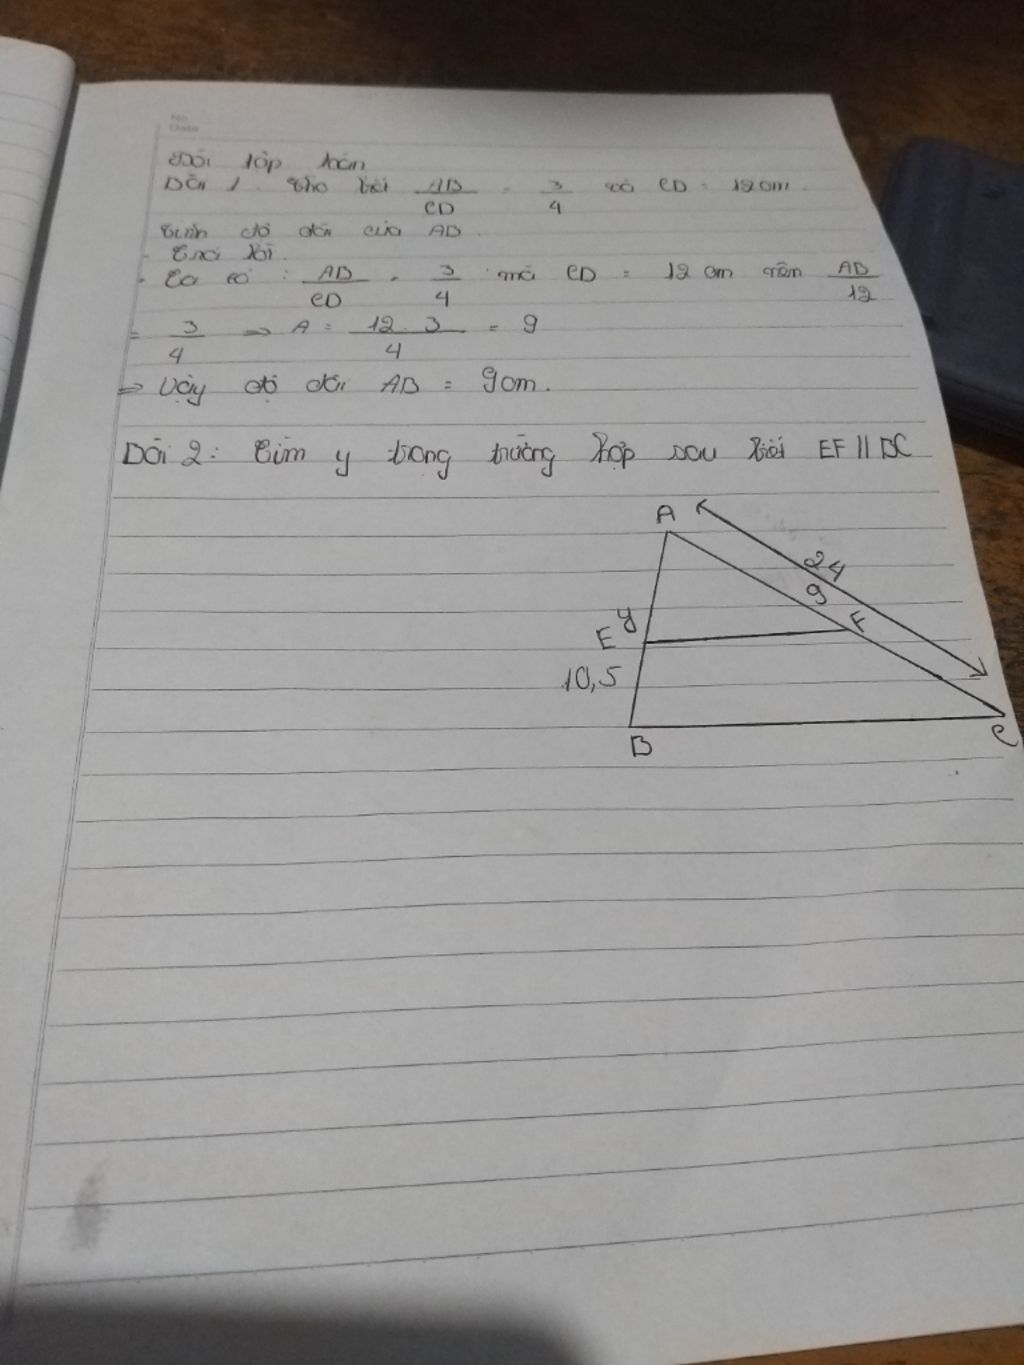 No.
Date
Bài tập toán
Bài 1. Cho biết AB/CD = 3/4 và CD = 12cm.
Tính độ dài của AB.
- Trả lời.
. Ta có : AB/CD = 3/4 mà CD = 12 cm nên AB/12
= 3/4 => A = 12.3/4 = 9
=> Vậy độ dài AB = 9cm.
Bài 2: Tìm y trong trường hợp sau biết EF // BC
A
24
9
y
E
F
10,5
B
C